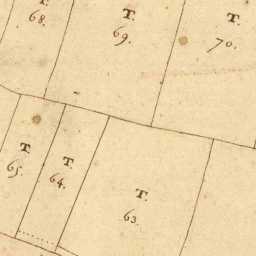 T.
68.
T.
69.
T.
70.
T.
65.
T.
64.
T.
63.